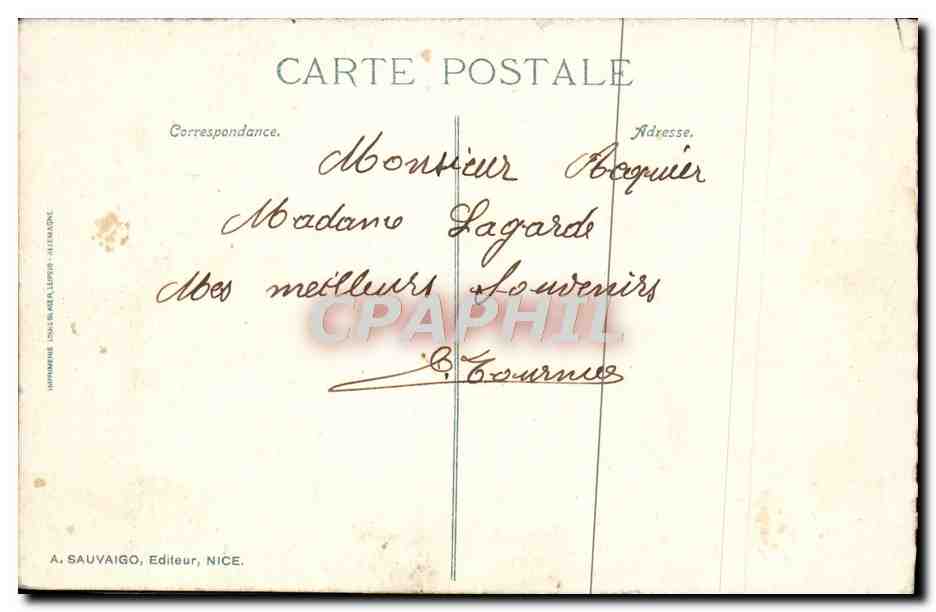 CARTE POSTALE
Correspondance.
Adresse.
Monsieur
Madame Lagarde
Mes meilleurs Souvenirs
CPAPHIL
IMPRIMERIE LOUIS GLASER, LEIPSIG - ALLEMAGNE.
A. SAUVAIGO, Editeur, NICE.